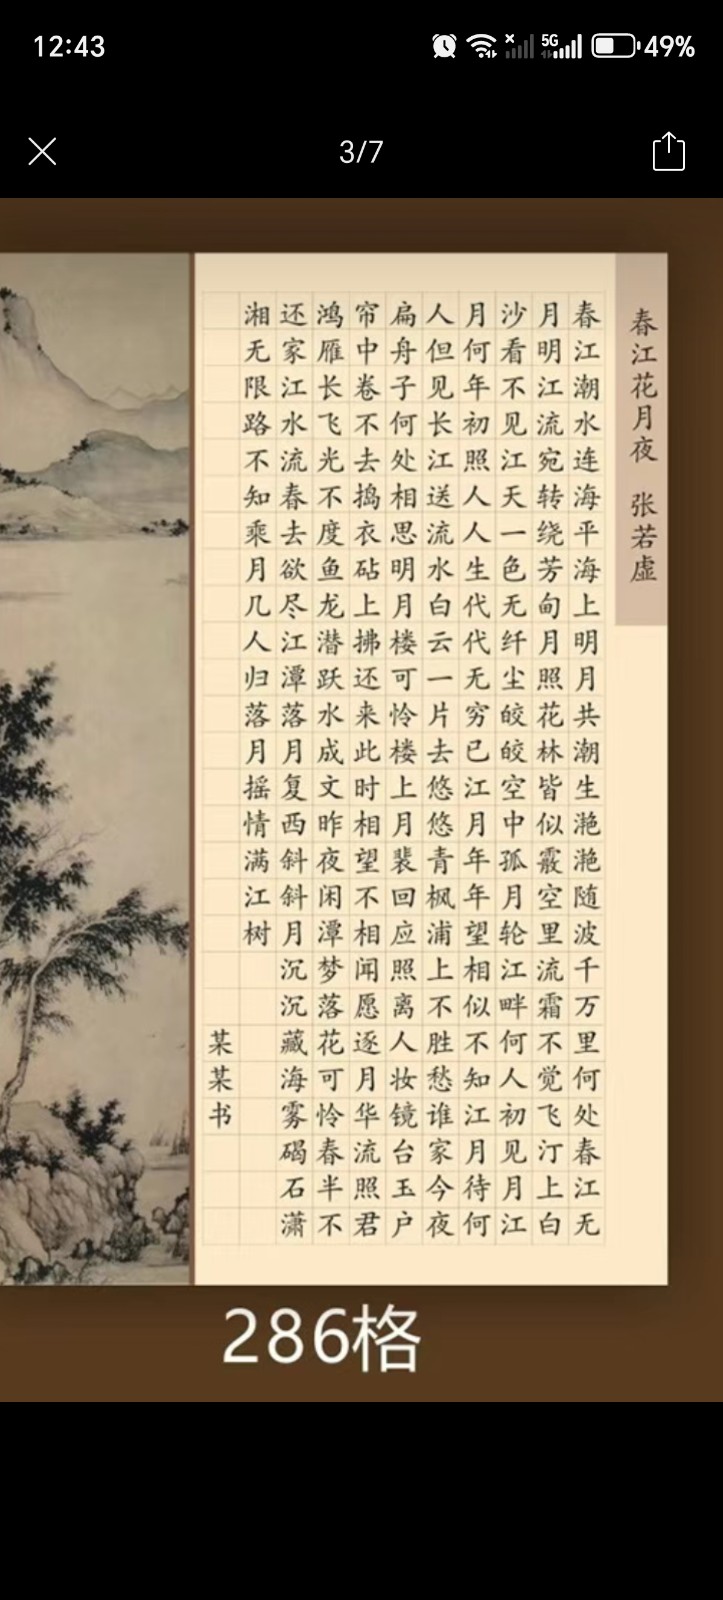 12:43
5G
49%
3/7
春江花月夜 张若虚
春江潮水连海平海上明月共潮生滟滟随波千万里何处春江无
月明江流宛转绕芳甸月照花林皆似霰空里流霜不觉飞汀上白
沙看不见江天一色无纤尘皎皎空中孤月轮江畔何人初见月江
月何年初照人人生代代无穷已江月年年望相似不知江月待何
人但见长江送流水白云一片去悠悠青枫浦上不胜愁谁家今夜
扁舟子何处相思明月楼可怜楼上月裴回应照离人妆镜台玉户
帘中卷不去捣衣砧上拂还来此时相望不相闻愿逐月华流照君
鸿雁长飞光不度鱼龙潜跃水成文昨夜闲潭梦落花可怜春半不
还家江水流春去欲尽江潭落月复西斜斜月沉沉藏海雾碣石潇
湘无限路不知乘月几人归落月摇情满江树
某某书
286格